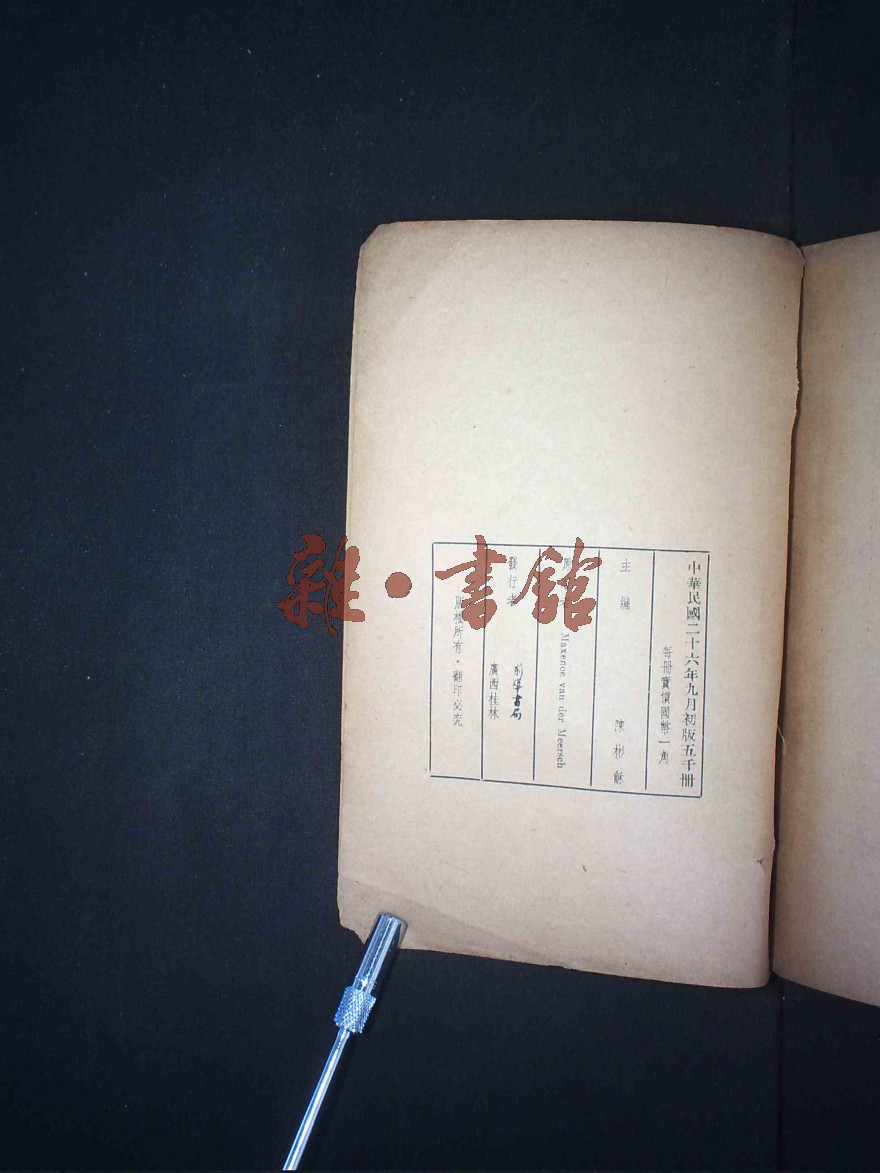 中華民國二十六年九月初版五千冊
每冊實價國幣一角
主編 陳彬龢
原 Maxence van der Meersch
發行者 前導書局
廣西桂林
版權所有・翻印必究
雜・書館